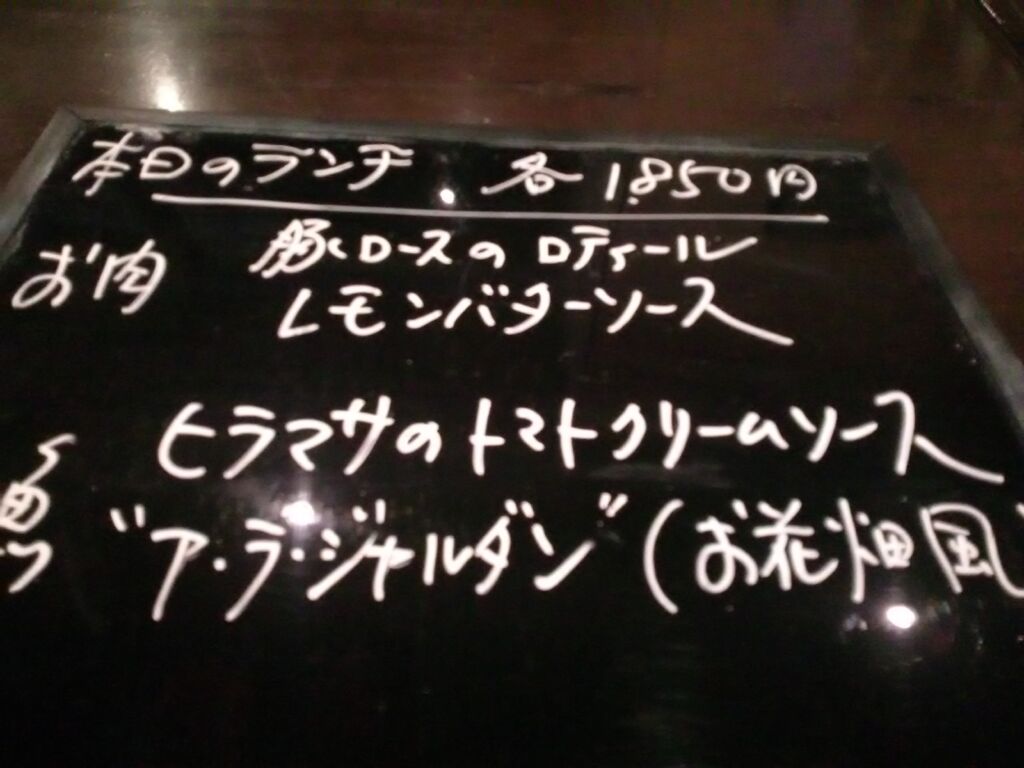 本日のランチ 各1,850円
お肉 豚ロースのロティール
レモンバターソース
魚 ヒラマサのトマトクリームソース
"ア・ラ・ジャルダン"(お花畑風)